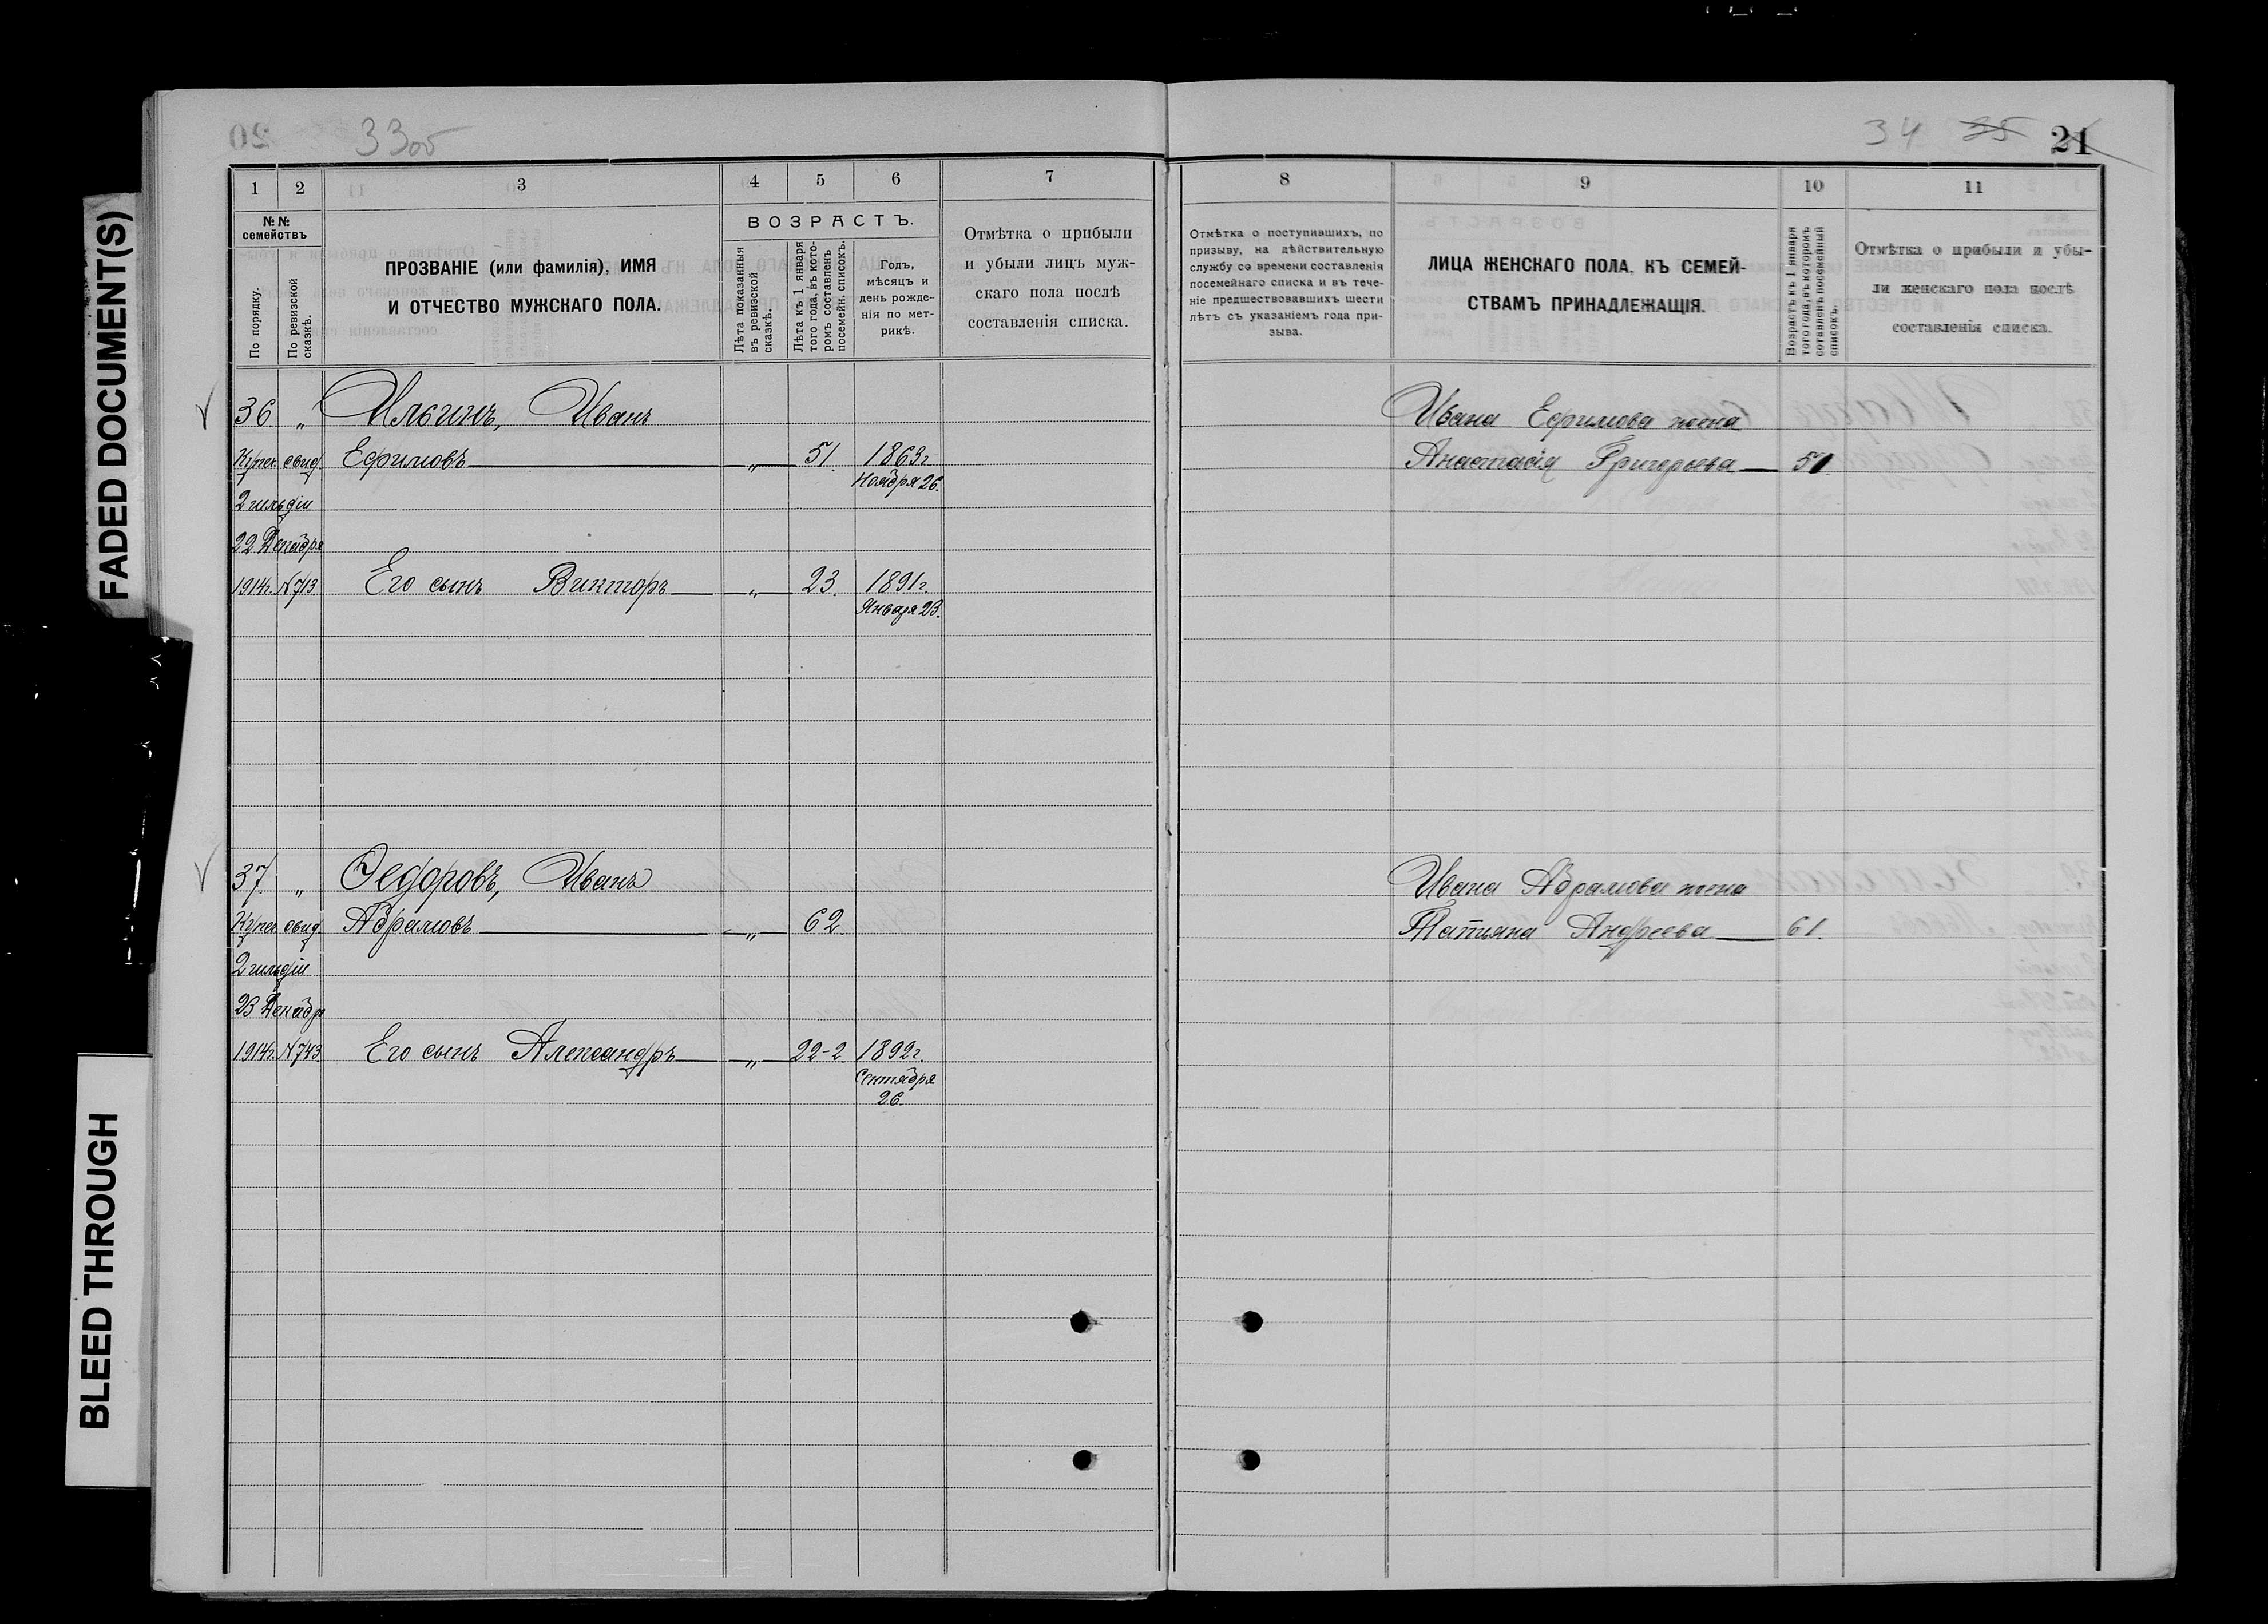 FADED DOCUMENT(S)
BLEED THROUGH
33об
34 35 21
1 2 3 4 5 6 7
№№ семействъ
По порядку.
По ревизской сказкѣ.
ПРОЗВАНІЕ (или фамилія), ИМЯ
И ОТЧЕСТВО МУЖСКАГО ПОЛА.
ВОЗРАСТЪ.
Лѣта показанныя въ ревизской сказкѣ.
Лѣта къ 1 января того года, въ кото-ромъ составленъ посемейн. списокъ.
Годъ,
мѣсяцъ и
день рожде-
нія по мет-
рикѣ.
Отмѣтка о прибыли
и убыли лицъ муж-
скаго пола послѣ
составленія списка.
36 „ Ильинъ, Иванъ
Купеч. свид. Ефимовъ „ 51. 1863г.
Ноября 26.
2 гильдіи
22 Декабря
1914г. №713. Его сынъ Викторъ „ 23. 1891г.
Января 23.
37. „ Ѳедоровъ, Иванъ
Купеч. свид. Абрамовъ „ 62.
2 гильдіи
23 Декабря
1914г. №743. Его сынъ Александръ „ 22-2 1892г.
Сентября
26.
8 9 10 11
Отмѣтка о поступившихъ, по
призыву, на дѣйствительную
службу со времени составленія
посемейнаго списка и въ тече-
ніе предшествовавшихъ шести
лѣтъ съ указаніемъ года при-
зыва.
ЛИЦА ЖЕНСКАГО ПОЛА, КЪ СЕМЕЙ-
СТВАМЪ ПРИНАДЛЕЖАЩІЯ.
Возрастъ къ 1 января
того года, въ которомъ
составленъ посемейный
списокъ.
Отмѣтка о прибыли и убы-
ли женскаго пола послѣ
составленія списка.
Ивана Ефимова жена
Анастасія Григорьева 51.
Ивана Абрамова жена
Татьяна Андреева 61.